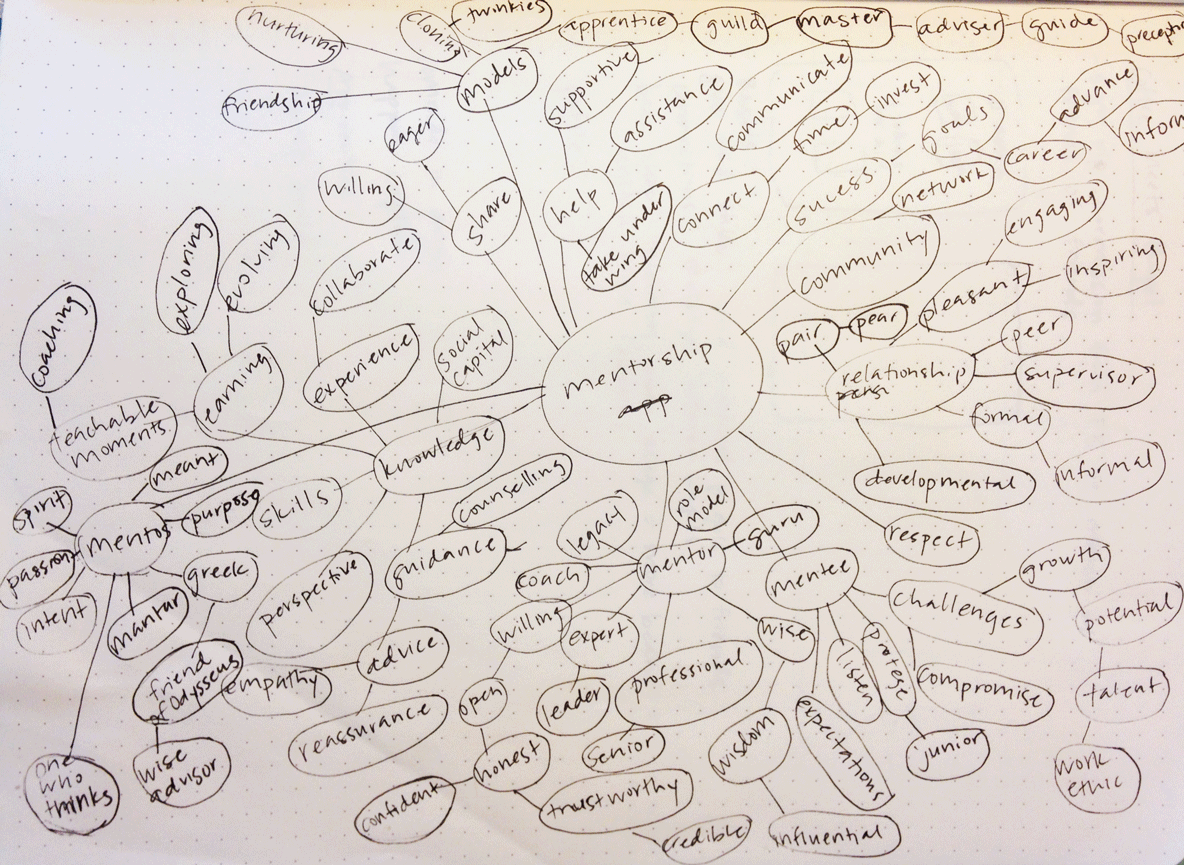 nurturing
cloning
twinkies
apprentice
guild
master
adviser
guide
models
friendship
supportive
assistance
communicate
time
invest
goals
advance
inform
career
eager
willing
share
help
take under
wing
connect
sucess
network
engaging
community
pleasant
inspiring
exploring
evolving
collaborate
coaching
social
capital
experience
mentorship
app
pair
pear
peer
relationship
supervisor
formal
informal
developmental
teachable
moments
learning
knowledge
meant
skills
counselling
spirit
purpose
mentos
passion
intent
mantar
greek
perspective
guidance
legacy
role
model
guru
respect
coach
mentor
mentee
growth
challenges
potential
willing
expert
wise
listen
protege
friend
of Odysseus
empathy
advice
professional
compromise
talent
open
leader
reassurance
senior
wisdom
expectations
junior
work
ethic
one
who
thinks
wise
advisor
honest
confident
trustworthy
credible
influential